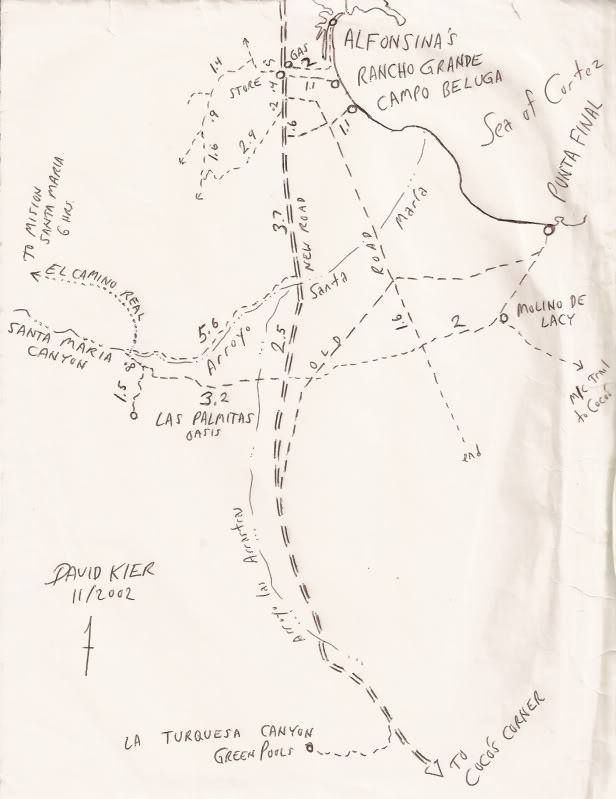 ALFONSINA'S
RANCHO GRANDE
CAMPO BELUGA
GAS
2
1.1
STORE
.5
.4
.2
.6
1.1
1.4
.9
1.6
2.9
Sea of Cortez
PUNTA FINAL
TO MISION
SANTA MARIA
6 HRS.
EL CAMINO REAL
3.7
NEW ROAD
Santa
Maria
OLD
ROAD
1.6
2
MOLINO DE
LACY
M/C Trail
to Coco's
end
5.6
Arroyo
SANTA MARIA
CANYON
.8
1.5
3.2
2.5
LAS PALMITAS
OASIS
Arroyo las Arrastras
DAVID KIER
11/2002
LA TURQUESA CANYON
GREEN POOLS
TO
COCO'S CORNER